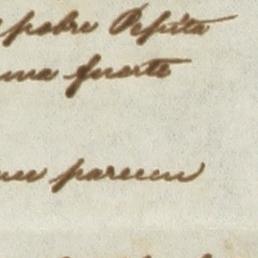 pobre Pepita
una fuerte
parecen